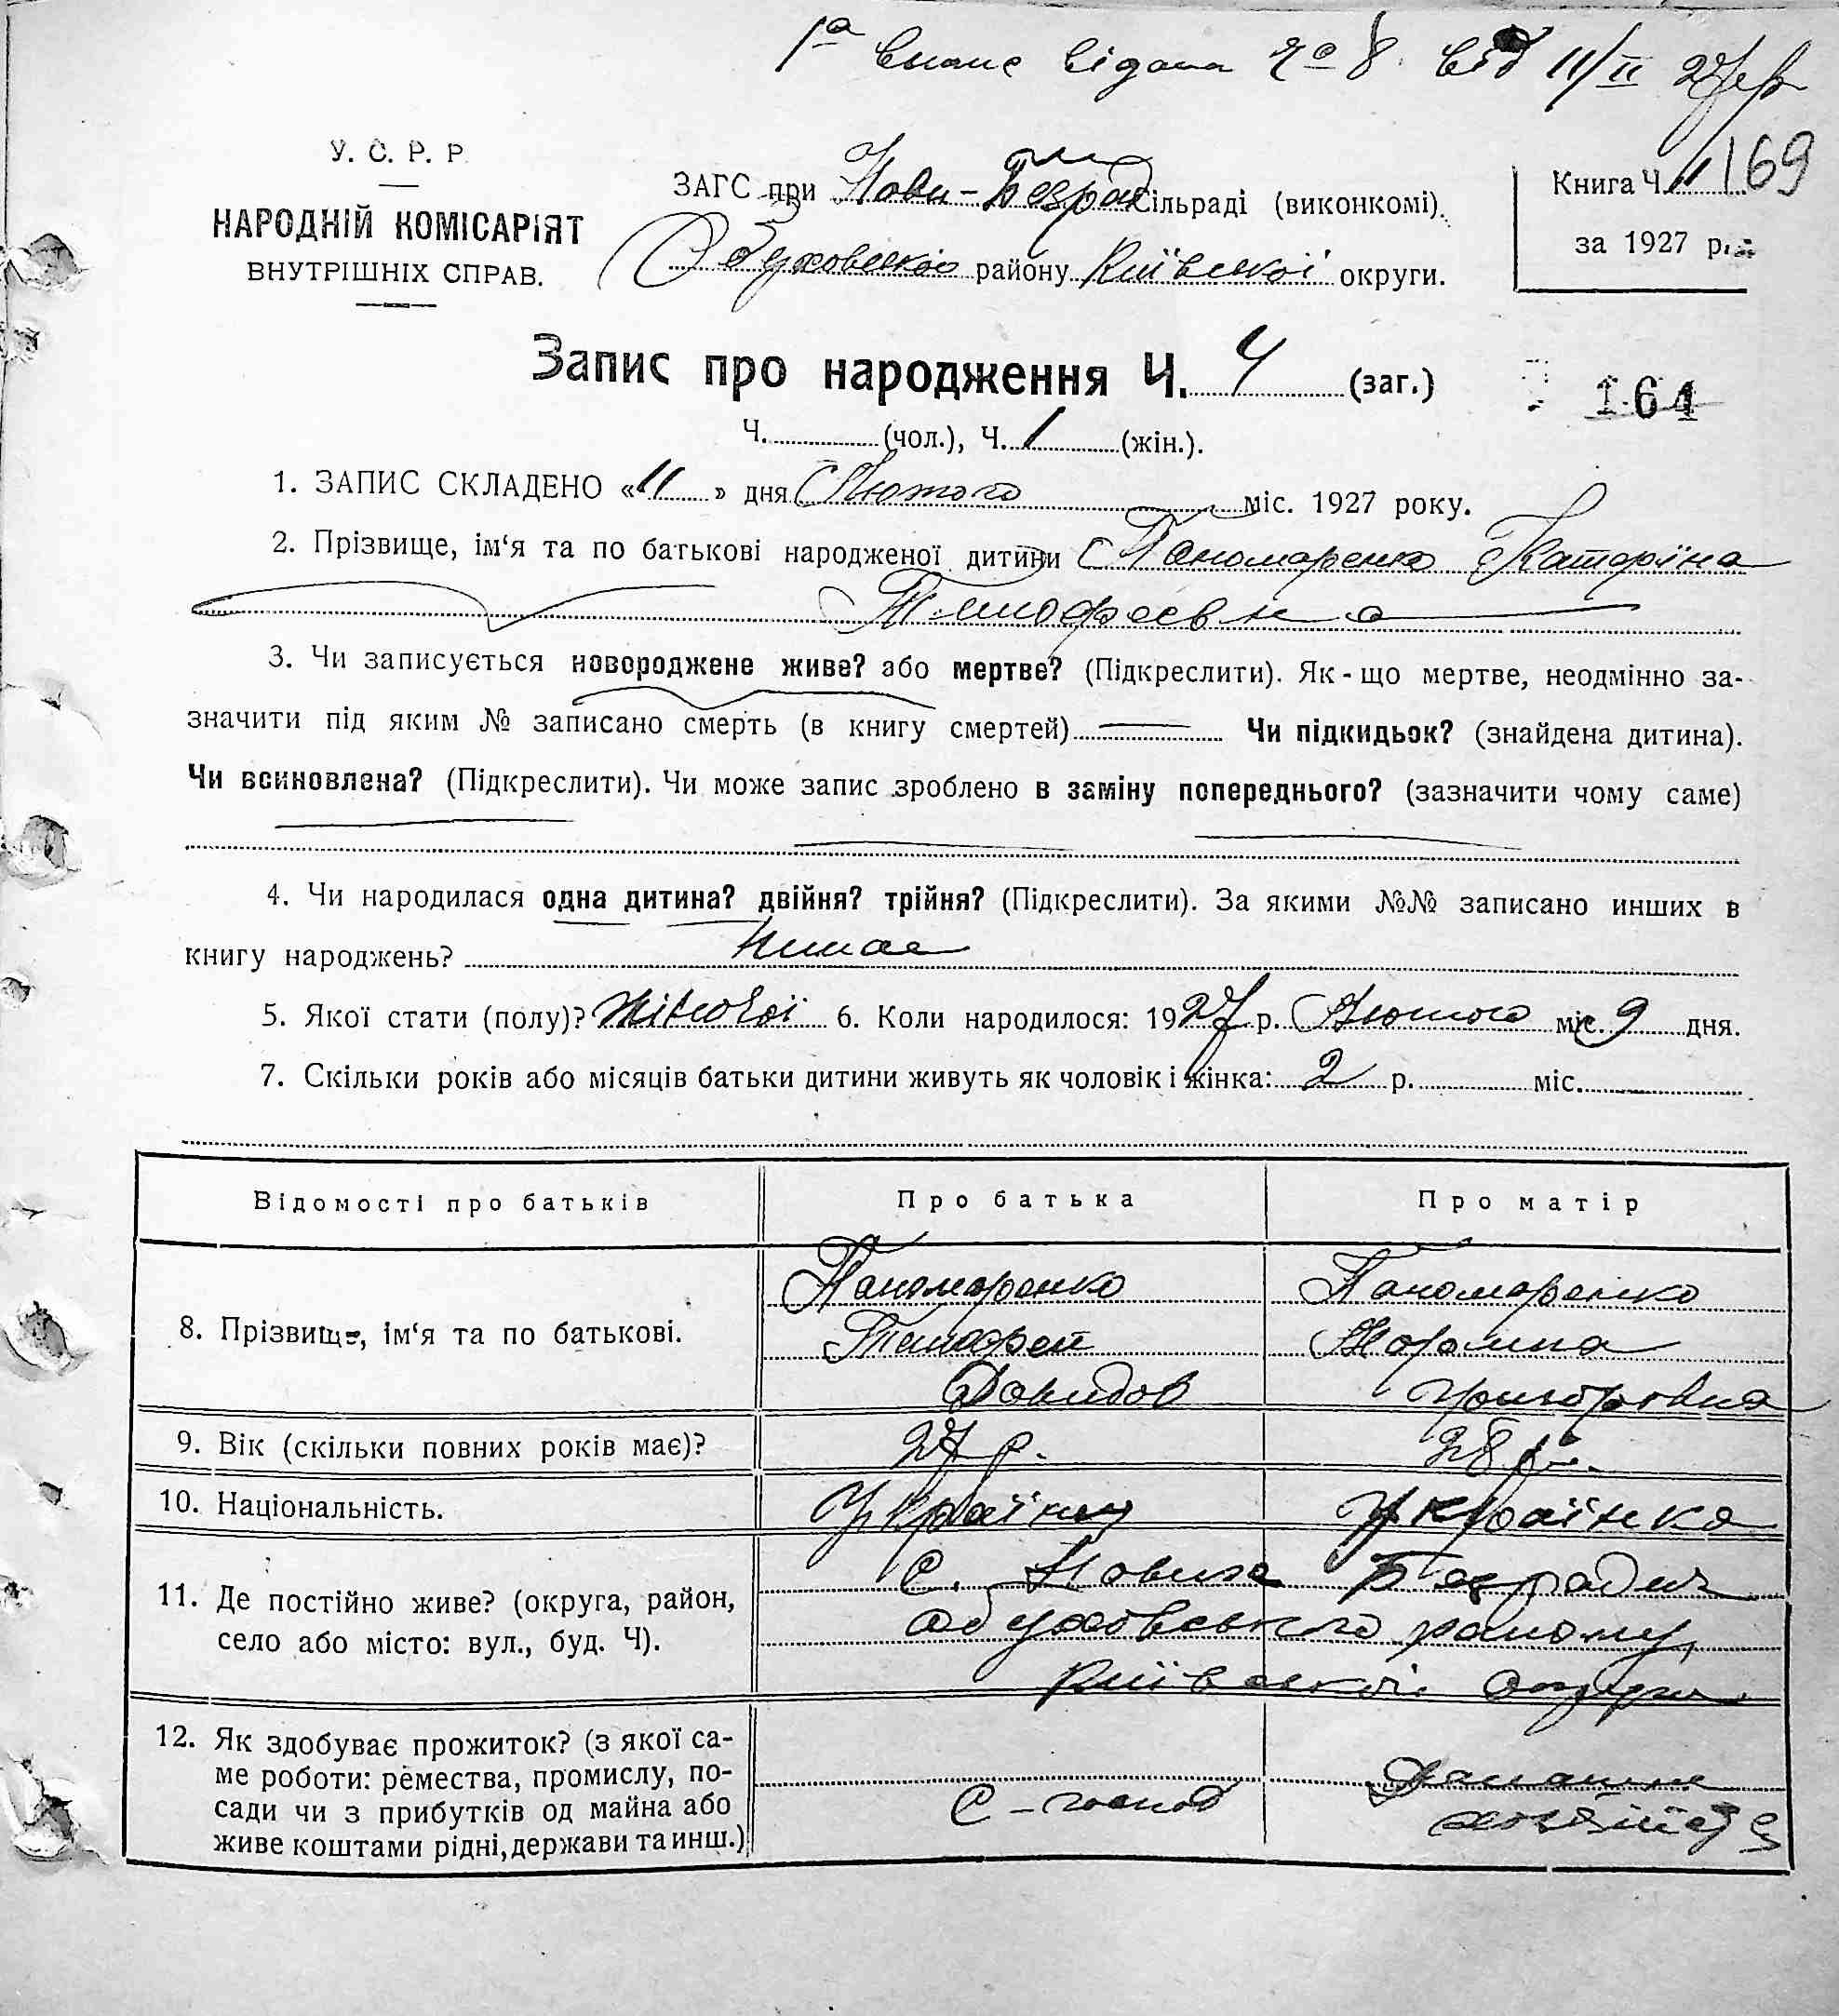 1а випис видана № 8 від 11/II 27 р
У. С. Р. Р.
НАРОДНІЙ КОМІСАРІЯТ
ВНУТРІШНІХ СПРАВ.
ЗАГС при Нови-Безрад Сільраді (виконкомі).
Обуховског району Київської округи.
Книга Ч. 169
за 1927 р.
Запис про народження Ч. 4 (заг.)
164
Ч. (чол.), Ч. 1 (жін.).
1. ЗАПИС СКЛАДЕНО «11» дня Лютого міс. 1927 року.
2. Прізвище, ім‘я та по батькові народженої дитини Паномаренко Катеріна
Тимофеевна
3. Чи записується новороджене живе? або мертве? (Підкреслити). Як-що мертве, неодмінно за-
значити під яким № записано смерть (в книгу смертей) Чи підкидьок? (знайдена дитина).
Чи всиновлена? (Підкреслити). Чи може запис зроблено в заміну попереднього? (зазначити чому саме)
4. Чи народилася одна дитина? двійня? трійня? (Підкреслити). За якими №№ записано инших в
книгу народжень? Нимае
5. Якої стати (полу)? Жіночої 6. Коли народилося: 1927 р. Лютого міс. 9 дня.
7. Скільки років або місяців батьки дитини живуть як чоловік і жінка: 2 р. міс.
Відомості про батьків Про батька Про матір
8. Прізвище, ім‘я та по батькові.
Паномаренко Паномаренко
Тимофей
Давидов Григоровна
9. Вік (скільки повних років має)? 27 р. 28 р.
10. Національність. Українец Українка
11. Де постійно живе? (округа, район,
село або місто: вул., буд. Ч).
С. Нових Безрадич
Обуховського району,
Київскоі округи
12. Як здобуває прожиток? (з якої са-
ме роботи: ремества, промислу, по-
сади чи з прибутків од майна або
живе коштами рідні, держави та инш.)
С-господ Домашне